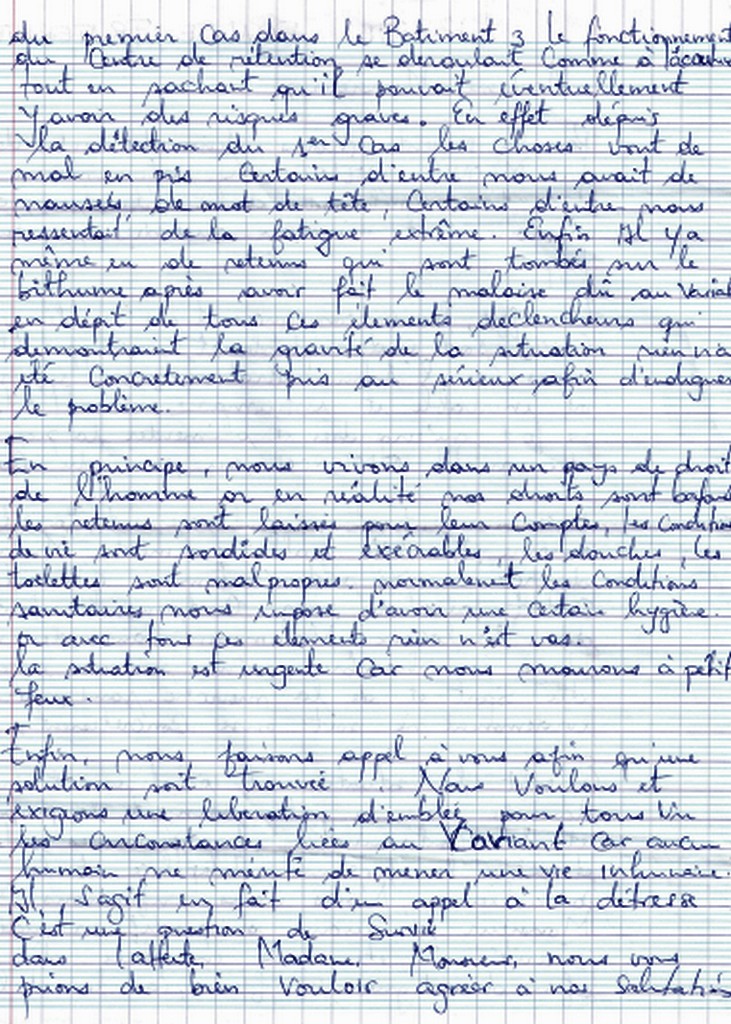 du premier Cas dans le Batiment 3 le fonctionnement
du Centre de rétention se deroulant Comme à
tout en sachant qu'il pouvait éventuellement
Y avoir des risques graves. En effet dépuis
la détection du 1er Cas les choses vont de
mal en pris Certains d'entre nous avait de
nauseés de mot de tête, Certains d'entre nous
ressentait de la fatigue extrême. Enfin Il y a
même eu de retenus qui sont tombés sur le
bithume après avoir fait le malaise dû au Varia
en dépit de tous ces élements declencheurs qui
demontraient la gravité de la situation rien n'a
été Concretement pris au sérieux afin d'endiguer
le problème.
En principe, nous vivons dans un pays de droit
de l'homme or en réalité nos droits sont bafou
les retenus sont laissés pour leur Comptes, les Condition
de vie sont sordides et exécrables, les douches, les
toilettes sont malpropres. normalement les Conditions
sanitaires nous impose d'avoir une Certain hygiène.
or avec tous ces elements rien n'est vas.
la situation est urgente Car nous mourons à petit
feux.
Enfin, nous faisons appel à vous afin qu'une
solution soit trouveé. Nous Voulons et
exigeons une liberation d'emblée pour tous Vu
les Circonstances liées au Variant Car aucun
humain ne mérite de mener une vie inhumaine.
Il s'agit en fait d'un appel à la détresse
C'est une question de Survie
dans l'attente, Madame, Monsieur, nous vous
prions de bien Vouloir agréer à nos Salutations